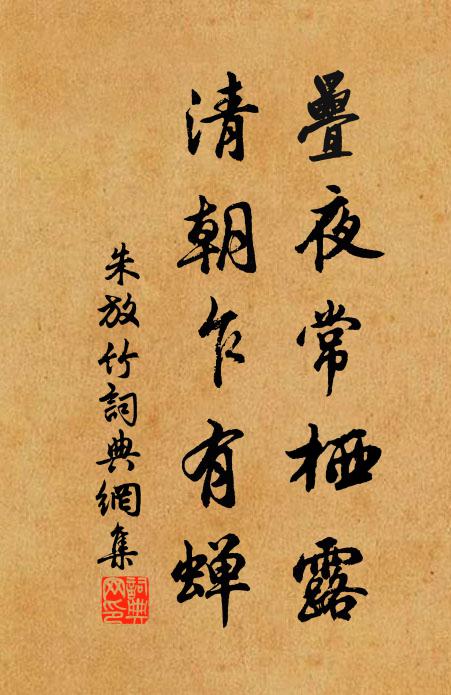 疊夜常栖露
清朝乍有蟬
朱放竹詞典網集
詞典網印